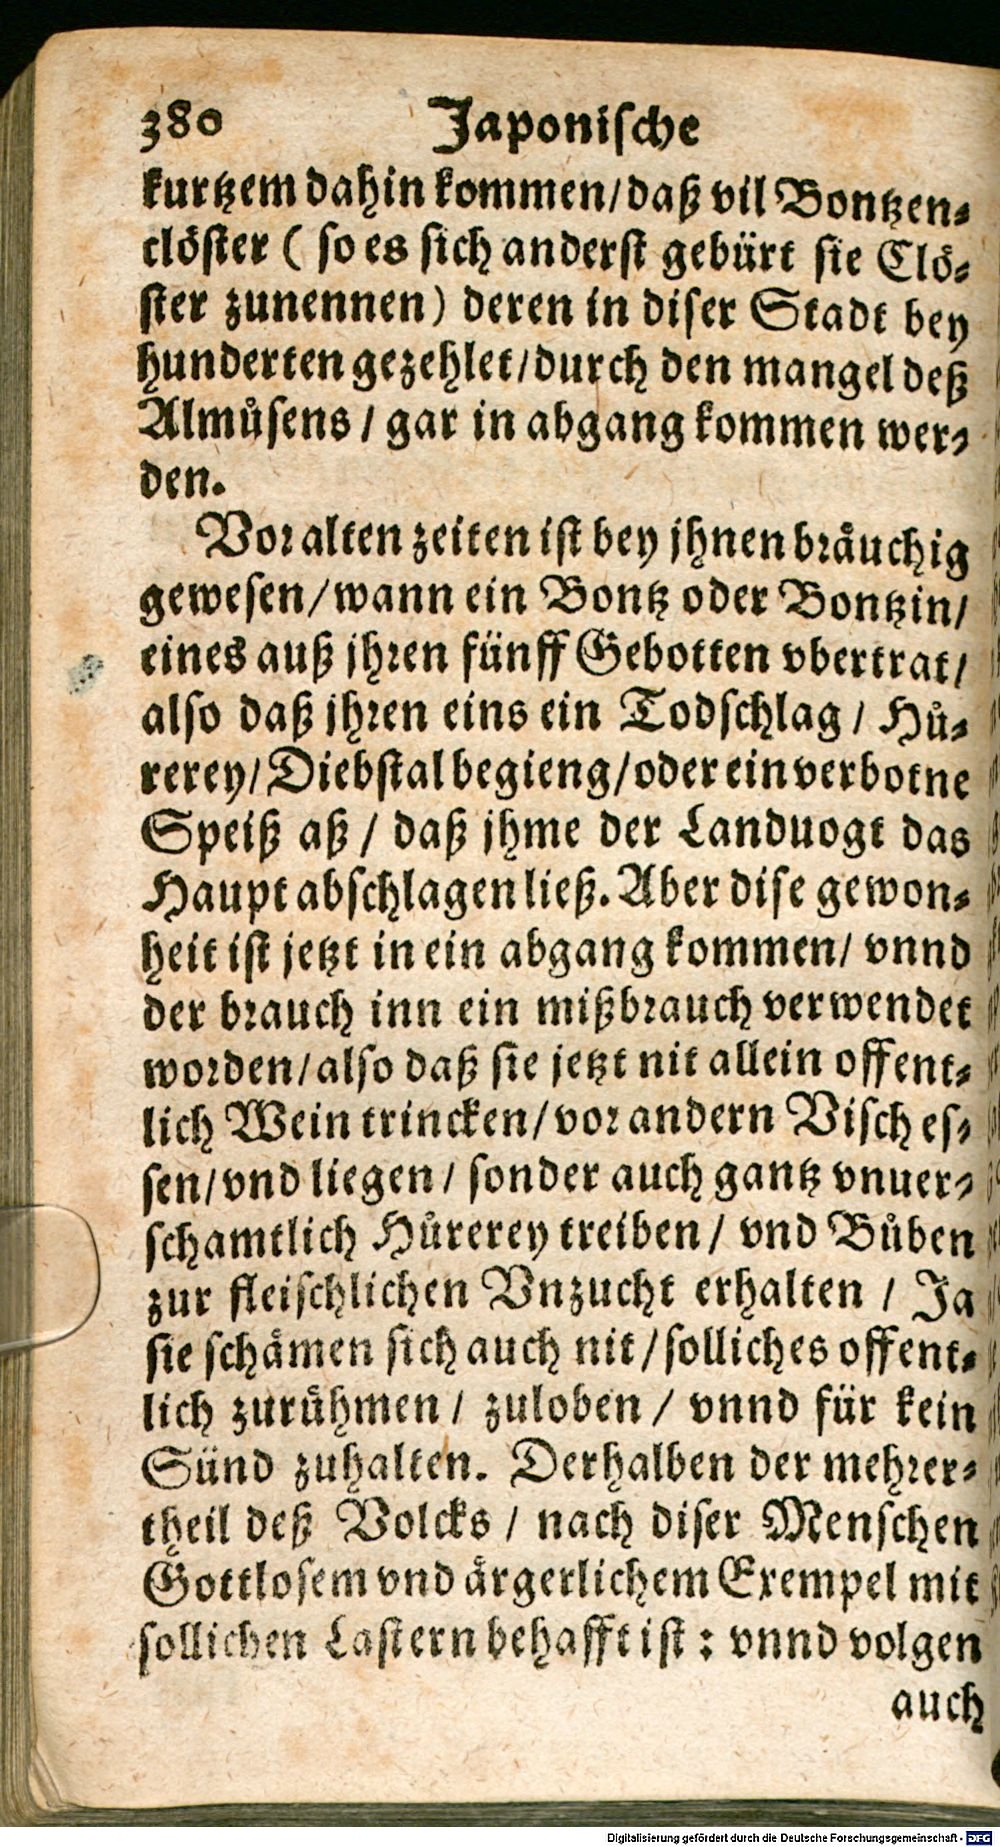 380 Japonische
kurtzem dahin kommen/daß vil Bontzen⸗
clöster ( so es sich anderst gebürt sie Clö⸗
ster zunennen) deren in diser Stadt bey
hunderten gezehlet/durch den mangel deß
Almůsens / gar in abgang kommen wer⸗
den.
Vor alten zeiten ist bey jhnen bråuchig
gewesen/wann ein Bontz oder Bontzin/
eines auß jhren fünff Gebotten vbertrat/
also daß jhren eins ein Todschlag / Hů⸗
rerey/Diebstal begieng/oder ein verbotne
Speiß aß / daß jhme der Landuogt das
Haupt abschlagen ließ. Aber dise gewon⸗
heit ist jetzt in ein abgang kommen/ vnnd
der brauch inn ein mißbrauch verwendet
worden/also daß sie jetzt nit allein offent⸗
lich Wein trincken/vor andern Visch es⸗
sen/vnd liegen/ sonder auch gantz vnuer⸗
schamtlich Hůrerey treiben/ vnd Bůben
zur fleischlichen Vnzucht erhalten / Ja
sie schåmen sich auch nit/solliches offent⸗
lich zurůhmen/ zuloben / vnnd für kein
Sünd zuhalten. Derhalben der mehrer⸗
theil deß Volcks / nach diser Menschen
Gottlosem vnd årgerlichem Exempel mit
sollichen Lastern behafft ist : vnnd volgen
auch
Digitalisierung gefördert durch die Deutsche Forschungsgemeinschaft - DFG